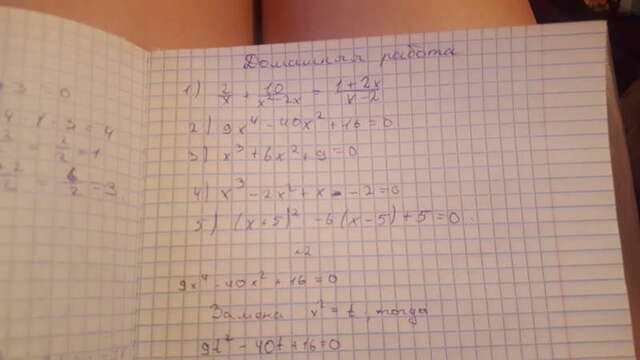 3 = 0
Домашняя работа
1) 2/x + 10/x²-2x = 1+2x/x-2
2) 9x⁴ - 40x² + 16 = 0
3) x³ + 6x² + 9 = 0
4) x³ - 2x² + x - 2 = 0
5) (x-5)² - 6(x-5) + 5 = 0
9x⁴ - 40x² + 16 = 0
Замена x² = t, тогда
9t² - 40t + 16 = 0